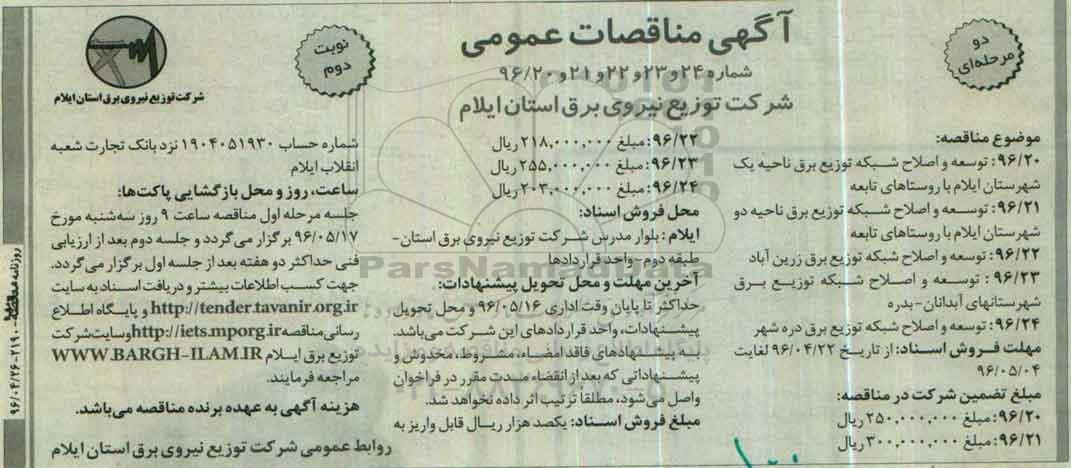 آگهی مناقصات عمومی
شماره ۲۴ و ۲۳ و ۲۲ و ۲۱ و ۹۶/۲۰
شرکت توزیع نیروی برق استان ایلام
دو
مرحله‌ای
نوبت
دوم
شرکت توزیع نیروی برق استان ایلام
موضوع مناقصه:
۹۶/۲۰: توسعه و اصلاح شبکه توزیع برق ناحیه یک
شهرستان ایلام با روستاهای تابعه
۹۶/۲۱: توسعه و اصلاح شبکه توزیع برق ناحیه دو
شهرستان ایلام با روستاهای تابعه
۹۶/۲۲: توسعه و اصلاح شبکه توزیع برق زرین آباد
۹۶/۲۳: توسعه و اصلاح شبکه توزیع برق
شهرستانهای آبدانان-بدره
۹۶/۲۴: توسعه و اصلاح شبکه توزیع برق دره شهر
مهلت فروش اسناد: از تاریخ ۹۶/۰۴/۲۲ لغایت
۹۶/۰۵/۰۴
مبلغ تضمین شرکت در مناقصه:
۹۶/۲۰: مبلغ ۲۵۰,۰۰۰,۰۰۰ ریال
۹۶/۲۱: مبلغ ۳۰۰,۰۰۰,۰۰۰ ریال
۹۶/۲۲: مبلغ ۲۱۸,۰۰۰,۰۰۰ ریال
۹۶/۲۳: مبلغ ۲۵۵,۰۰۰,۰۰۰ ریال
۹۶/۲۴: مبلغ ۲۰۳,۰۰۰,۰۰۰ ریال
محل فروش اسناد:
ایلام: بلوار مدرس شرکت توزیع نیروی برق استان-
طبقه دوم-واحد قراردادها
آخرین مهلت و محل تحویل پیشنهادات:
حداکثر تا پایان وقت اداری ۹۶/۰۵/۱۶ و محل تحویل
پیشنهادات، واحد قراردادهای این شرکت می‌باشد.
به پیشنهادهای فاقد امضاء، مشروط، مخدوش و
پیشنهاداتی که بعد از انقضاء مدت مقرر در فراخوان
واصل می‌شود، مطلقا ترتیب اثر داده نخواهد شد.
مبلغ فروش اسناد: یکصد هزار ریال قابل واریز به
شماره حساب ۱۹۰۴۰۵۱۹۳۰ نزد بانک تجارت شعبه
انقلاب ایلام
ساعت، روز و محل بازگشایی پاکت‌ها:
جلسه مرحله اول مناقصه ساعت ۹ روز سه‌شنبه مورخ
۹۶/۰۵/۱۷ برگزار می گردد و جلسه دوم بعد از ارزیابی
فنی حداکثر دو هفته بعد از جلسه اول برگزار می گردد.
جهت کسب اطلاعات بیشتر و دریافت اسناد به سایت
http://tender.tavanir.org.ir و پایگاه اطلاع
رسانی مناقصه http://iets.mporg.ir وسایت شرکت
توزیع برق ایلام WWW.BARGH-ILAM.IR
مراجعه فرمایند.
هزینه آگهی به عهده برنده مناقصه می‌باشد.
روابط عمومی شرکت توزیع نیروی برق استان ایلام
ParsNamadData